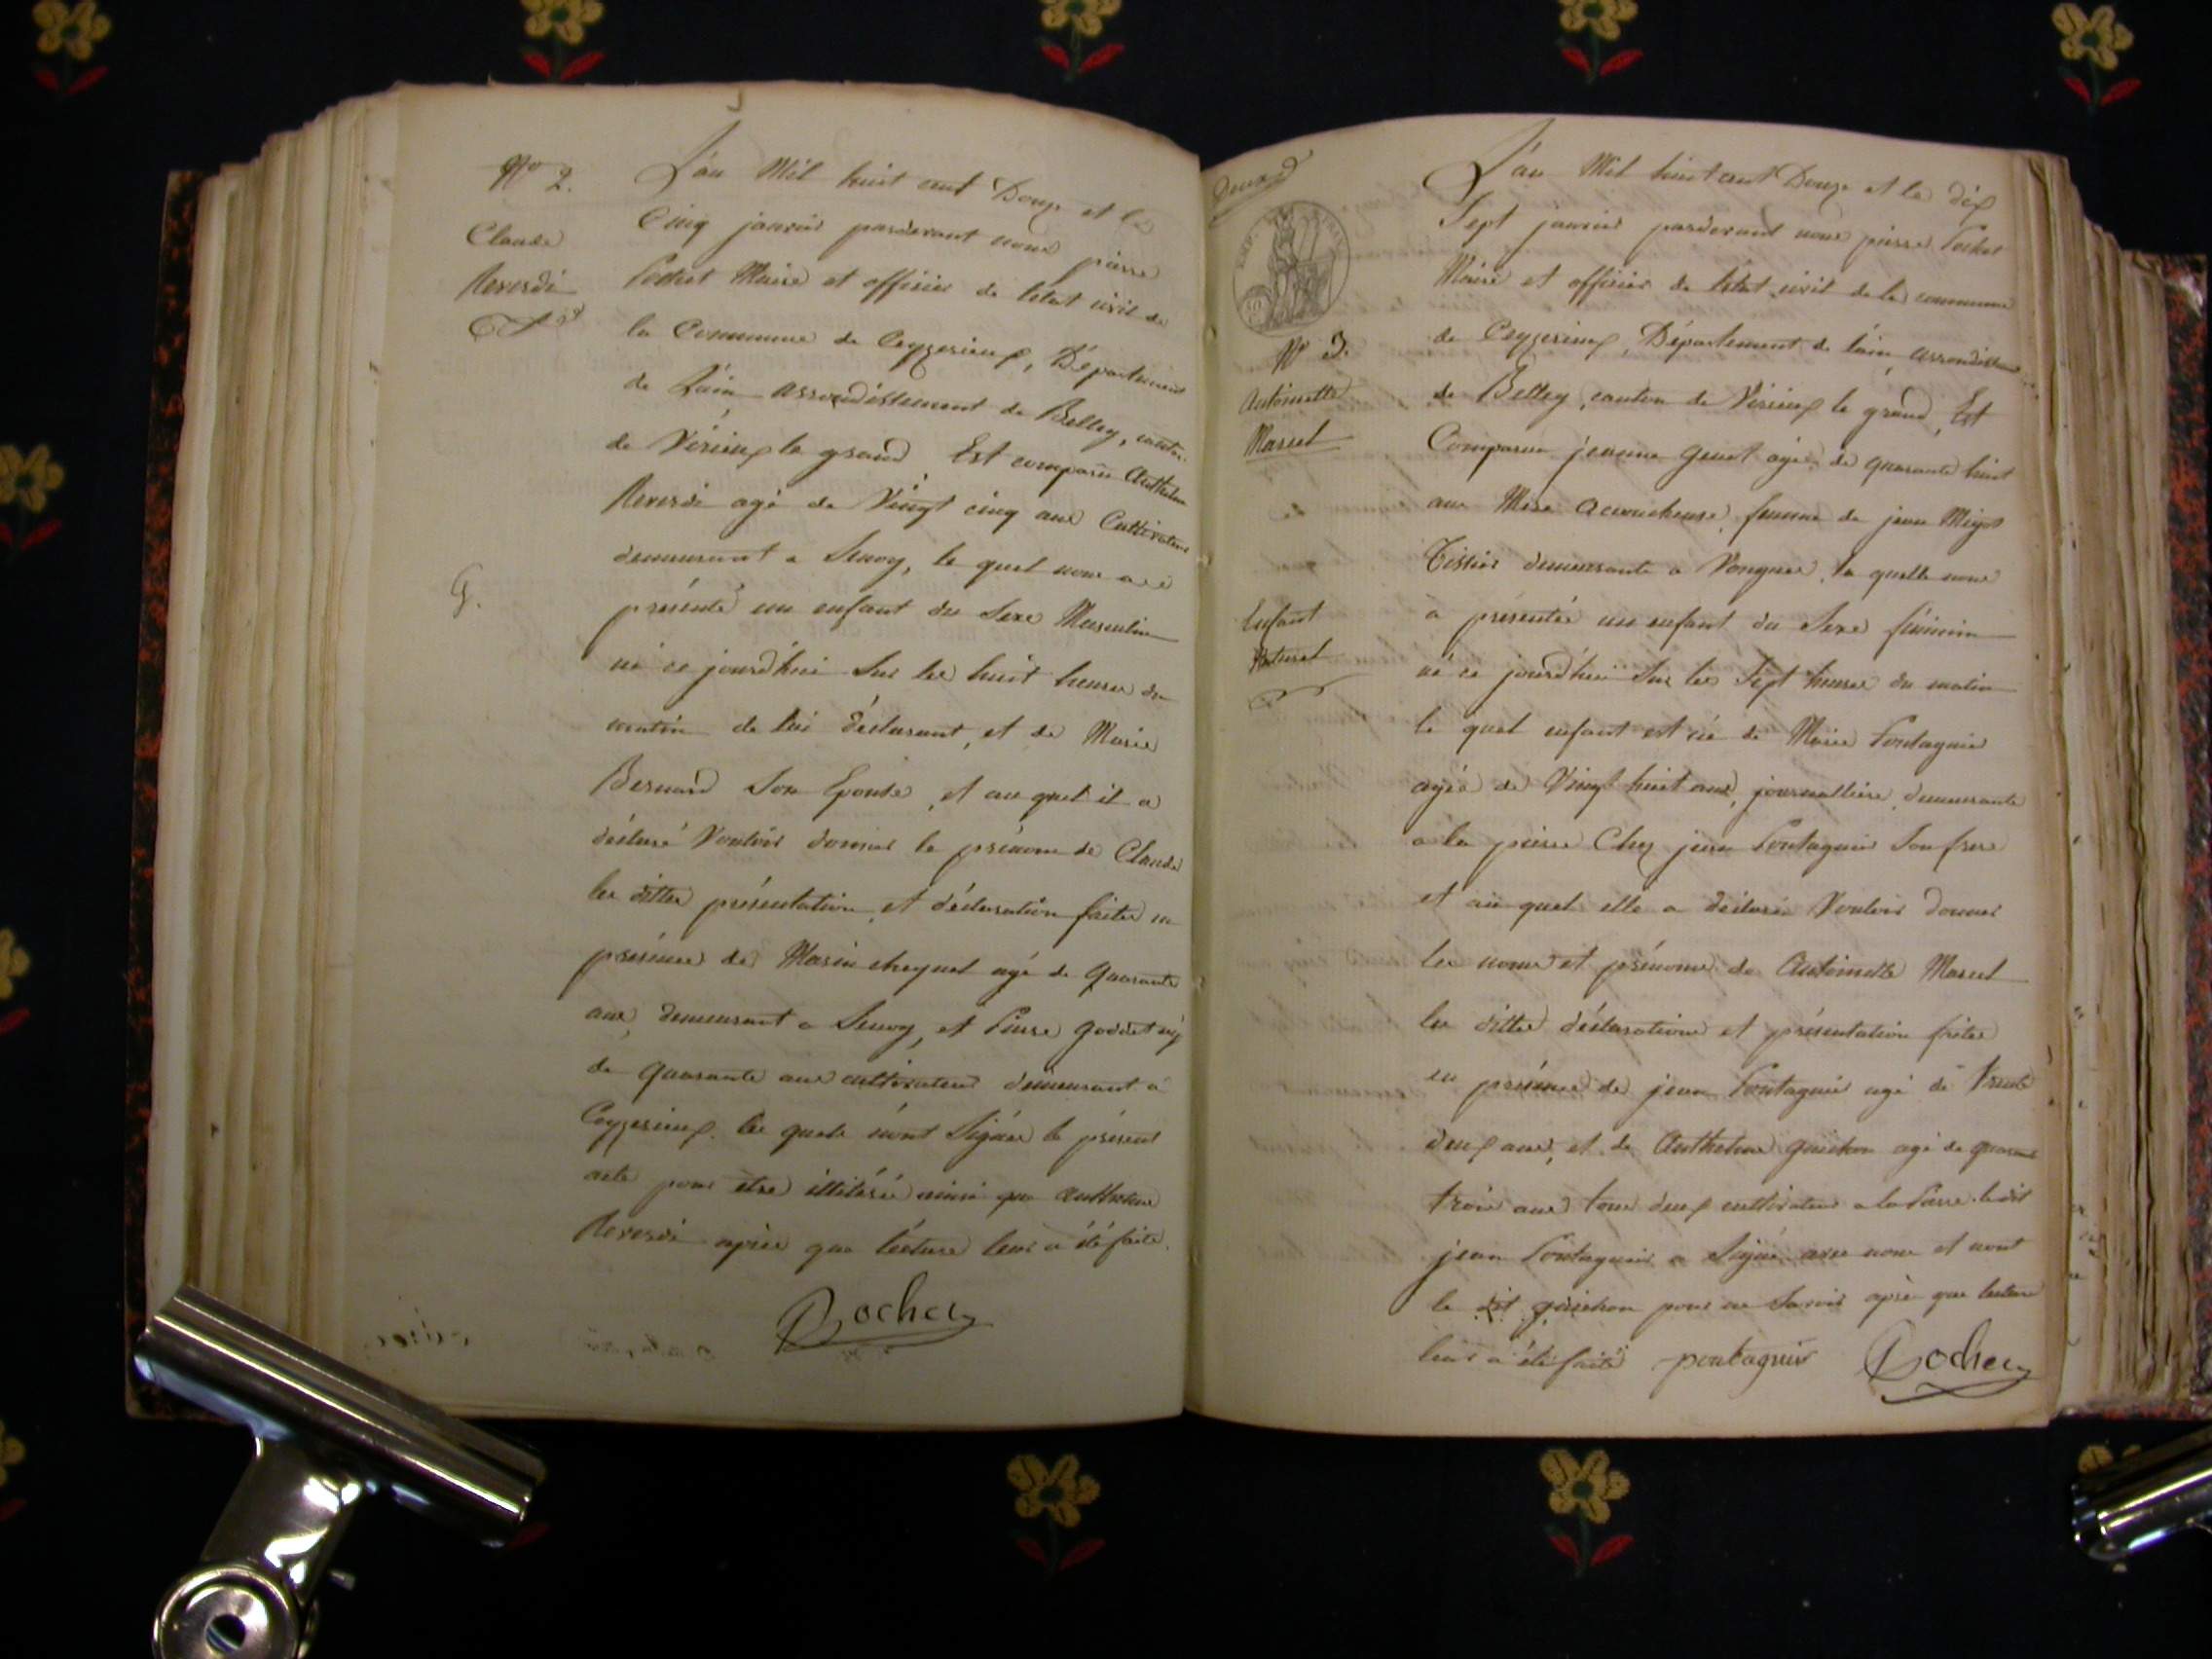 No 2.
Claude
Reverdi
G.
L'an Mil huit cent Douze et le
Cinq janvier pardevant nous pierre
Pochet Maire et officier de letat civil de
la Commune de Ceyzerieux, Département
de L'ain arrondissement de Belley, canton
de Virieux le grand, Est comparu Anthelme
Reverdi agé de Vingt cinq ans Cultivateur
demeurant a Senoy, le quel nous a
présenté un enfant du Sexe Masculin
né ce jourd'hui Sur les huit heures du
matin de lui déclarant, et de Marie
Bernard Son Epouse, et au quel il a
déclaré Vouloir donner le prénom de Claude
les dittes présentation et déclaration faites en
présence de Marin chequet agé de quarante
ans, demeurant a Senoy, et Pierre goddet agé
de quarante ans cultivateur demeurant a
Ceyzerieux. les quels n'ont Signés le présent
acte pour etre illitérés ainsi que anthelme
Reverdi après que lecture leur a été faite.
Pochet
Deuxd
EMP. FRAN.
No 3.
Antoinette
Marcel
Enfant
Naturel
L'an Mil huit cent Douze et le dix
Sept janvier pardevant nous pierre Pochet
Maire et officier de letat civil de la commune
de Ceyzerieux, Département de lain, arrondissem
de Belley, canton de Virieux le grand, Est
Comparue jeanne genet agée de quarante huit
ans Mere accoucheuse, femme de jean Migot
Tissier demeurante a Vongnes, la quelle nous
a présentée un enfant du Sexe féminin
né ce jourd'hui Sur les Sept heures du matin
le quel enfant est né de Marie Pontagnier
agée de Vingt huit ans, journalliere, demeurante
a la pierre Chez jean Pontagnier Son frere
et au quel elle a déclarée Vouloir donner
les noms et prénoms de Antoinette Marcel
les dittes déclarations et présentation faites
en présence de jean Pontagnier agé de trente
deux ans, et de Anthelme guichon agé de quarante
trois ans tous deux cultivateurs a la Pierre le dit
jean Pontagnier a Signé avec nous et non
le dit guichon pour ne Savoir après que lecture
leur a été faite pontagnier Pochet